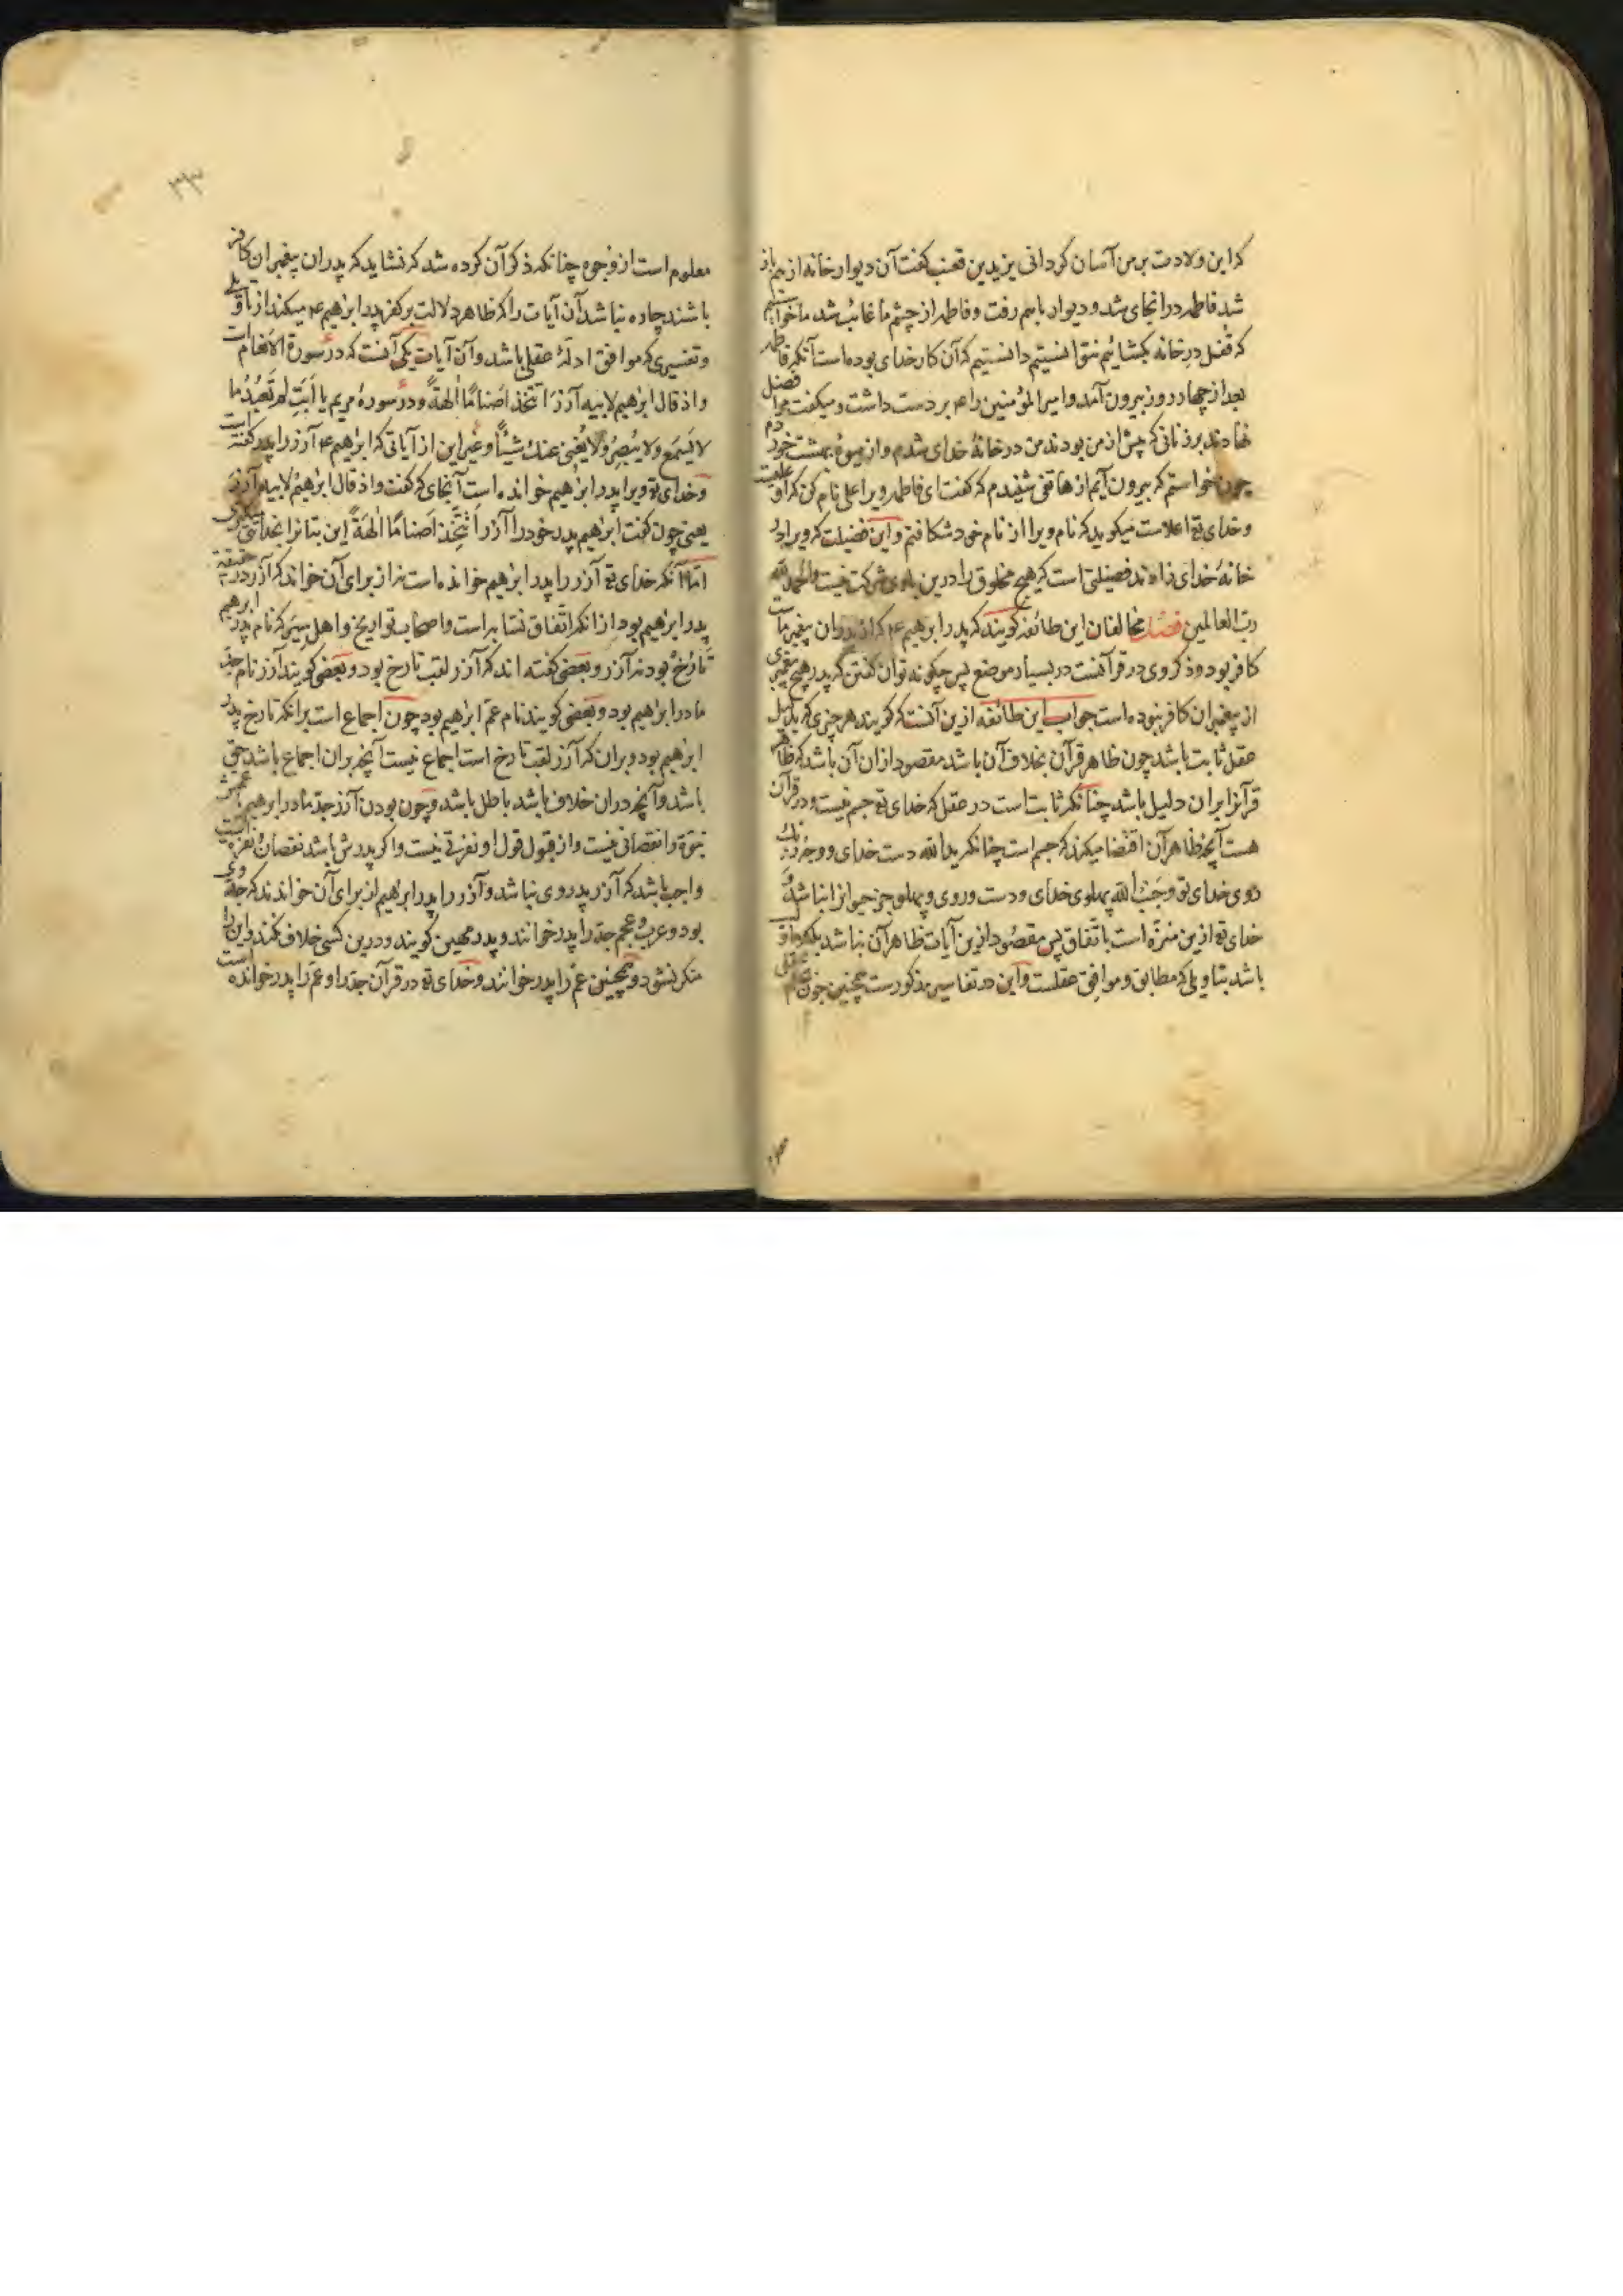 که این ولادت بر من آسان کردانی یزید بن قعنب کفت آن دیوار خانه از هم باز
شد فاطمه در انجای شد و دیوار باهم رفت و فاطمه از چشم ما غائب شد ما خواستیم
که قفل در خانه بکشائیم نتوانستیم دانستیم که آن کار خدای بوده است آنکه فاطمه
بعد از چهار روز بیرون آمد و امیرالمؤمنین را ع بر دست داشت و میکفت مرا فضل
نهادند بر زنانی که پیش از من بودند من در خانۀ خدای شدم و از میوۀ بهشت خوردم
چون خواستم که بیرون آیم از هاتفی شنیدم که کفت ای فاطمه ویرا علی نام کن که او علیست
و خدای تع اعلاست میکوید که نام ویرا از نام خود شکافتم و این فضیلت که ویرا در
خانۀ خدای زاده‌اند فضیلتی است که هیچ مخلوق را درین با وی شرکت نیست والحمد لله
رب العالمین فصل مخالفان این طائفه کویند که پدر ابرهیم ع که از پدران پیغمبر ماست
کافر بود و ذکر وی در قرآنست در بسیار موضع پس چکونه توان کفتن که پدر هیچ پیغمبری
از پیغمبران کافر نبوده است جواب این طائفه ازین آنست که کویند هر چیزی که بدلیل
عقل ثابت باشد چون ظاهر قرآن بخلاف آن باشد مقصود ازان آن باشد که ظاهر
قرآنرا بران دلیل باشد چنانکه ثابت است در عقل که خدای تع جسم نیست و در قرآن
هست آنچه ظاهر آن اقتضا میکند که جسم است چنانکه ید الله دست خدای و وجه ربک
روی خدای تع و جنب الله پهلوی خدای و دست و روی و پهلو جز حیوانرا نباشد و
خدای تع ازین منزه است باتفاق پس مقصود ازین آیات ظاهر آن نباشد بلکه
باشد بتاویلی که مطابق و موافق عقلست و این در تفاسیر مذکورست همچنین چون
معلوم است از وجوه چنانکه ذکر آن کرده شد که نشاید که پدران پیغمبران کافر
باشند چاره نباشد آن آیات را که ظاهر دلالت بر کفر پدر ابرهیم ع میکند از تاویلی
و تفسیری که موافق ادلۀ عقلی باشد و آن آیات یکی آنست که در سورة الانعام است
و اذ قال ابرهیم لابیه آزر اتتخذ اصناما الهة و در سورۀ مریم یا ابت لم تعبد ما
لا یسمع ولا یبصر ولا یغنی عنک شیئا و غیر این از آیاتی که ابرهیم ع آزر را پدر کفته است
و خدای تع ویرا پدر ابرهیم خوانده است آنجای که کفت و اذ قال ابرهیم لابیه آزر
یعنی چون کفت ابرهیم پدر خود را آزر اتتخذ اصناما الهة این بتانرا بخدائی
اما آنکه خدای تع آزر را پدر ابرهیم خوانده است نه از برای آن خواند که آزر در حقیقة
پدر ابرهیم بود از انکه اتفاق نسابه است و اصحاب تواریخ و اهل سیر که نام پدر ابرهیم
تارخ بود نه آزر و بعضی کفته اند که آزر لقب تارخ بود و بعضی کویند آزر نام جد
مادر ابرهیم بود و بعضی کویند نام عم ابرهیم بود چون اجماع است برانکه تارخ پدر
ابرهیم بود و بران که آزر لقب تارخ است اجماع نیست آنچه بران اجماع باشد حق
باشد و آنچه دران خلاف باشد باطل باشد و چون بودن آزر جد مادر ابرهیم
نبوة را نقصانی نیست و از قبول قول او نفرتی نیست و اکر پدرش باشد نقصان
واجب باشد که آزر پدر وی نباشد و آزر را پدر ابرهیم از برای آن خواندند که جد وی
بود و عرب و عجم جد را پدر خوانند و پدر مهین کویند و درین کسی خلاف نکند و این را
منکر نشود و همچنین عم را پدر خوانند و خدای تع در قرآن جد را و عم را پدر خوانده است